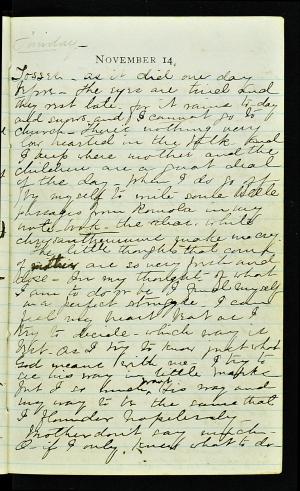 Sunday -
NOVEMBER 14.
as it did one day
The eyes are tired and
they rest late. for it rains to-day
and and I cannot go to
church - There's nothing very
hearted in the talk. and
I keep where mother and the
children are a great deal
of the day. When I do go off
by myself to write some little
phrases from Romola in my
note book - the dear white
chrysanthemums make me cry.
The little thoughts that come
of mother are so very and
close - In my thought of what
I am to do or be I find myself
in a perfect struggle I can
feel my heart beat as I
try to decide - which way is
best. As I try to know just what
God means with me. I try to
see his way in little marks
but I so want his way and
my way to be the same that
I flounder hopelessly.
Mother don't say much -
O - if I only knew what to do